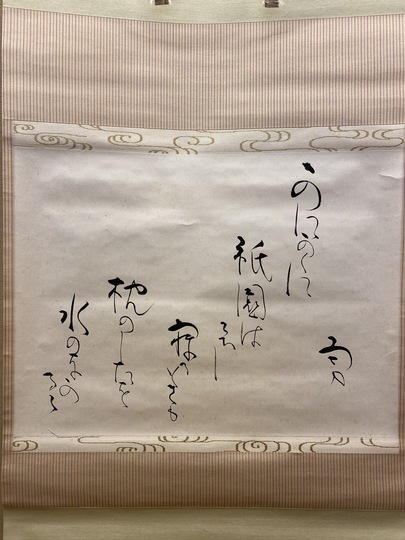 勇
かにかくに
祇園は
恋し
寝るときも
枕のしたを
水のなか
るる